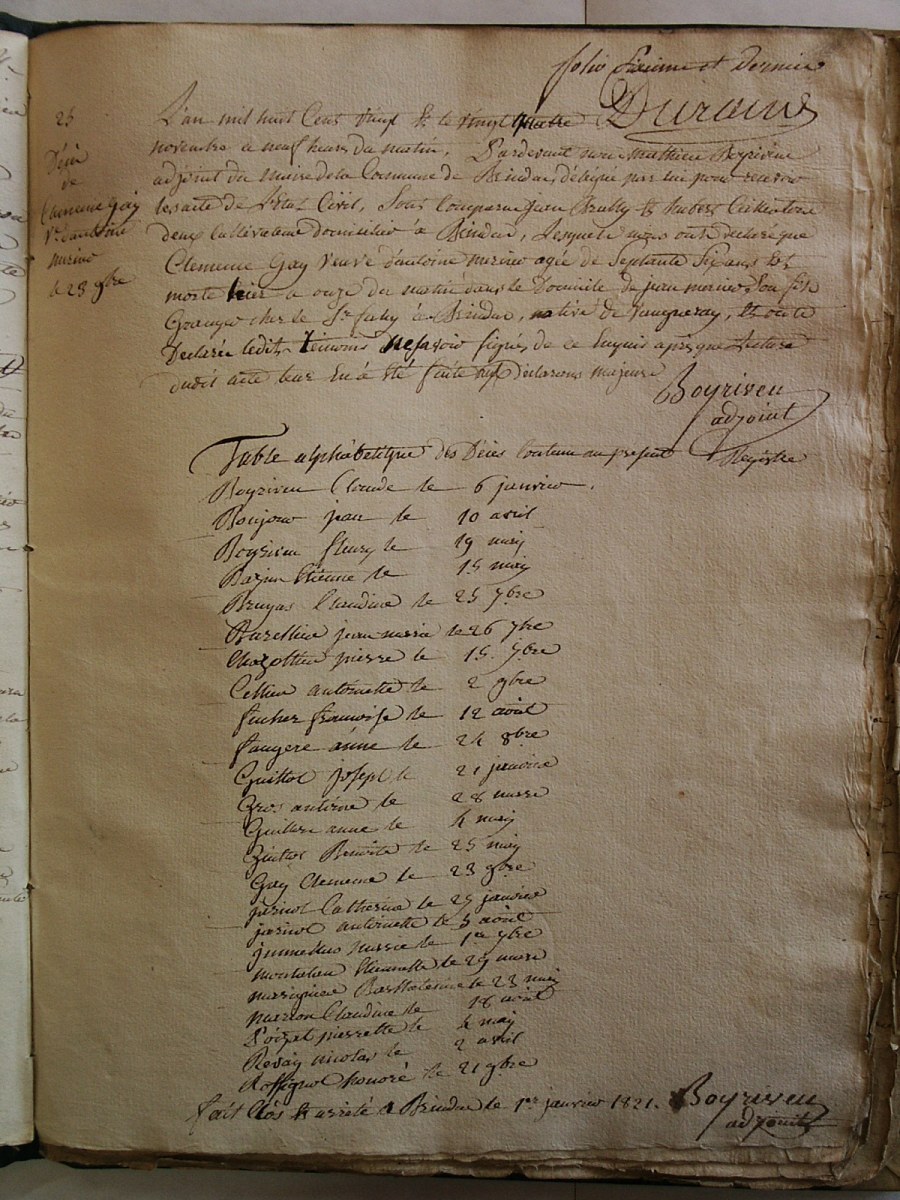 folio sixieme et dernier
Durand
25
Décè
de
Clemence Gay
Ve d'antoine
merino
le 23 9bre
L'an mil huit Cent vingt & le vingt quatre
novembre a neuf heurs du matin, Pardevant nous Mathieu Boyriven
adjoint du maire de la Commune de Brindas, délégué par lui pour recevoir
les acte de L'etat Civil, Sont Comparu jean &
deux Cultivateur domiciliés à Brindas, Lesquels nous onts declaré que
Clemence Gay veuve d'antoine merino agée de Septante Six ans est
morte hier a onze du matin dans le Domicile de jean merino Son fils
Granger chez le Sr à Brindas, native de vaugneray, Et onts
Declarée ledit temoins ne savoir signé, de ce Enquis après que Lecture
dudit acte leur En a Eté faite Déclarons majeurs
Boyriven
adjoint
Table alphabetique des Décès Contenu au present Registre
Boyriven Claude le 6 janvier.
Boujour jean le 10 avril
Boyriven fleury le 19 maij
Barjon Etienne le 15 maij
Bruyas Claudine le 25 7bre
jeanmarie le 26 7bre
Chazottier pierre le 15 7bre
Cellier antoinette le 2 9bre
françoise le 12 août
faugere anne le 24 8bre
Guillot joseph le 21 janvier
Gros antoine le 28 mars
anne le 4 maij
Benoite le 25 maij
Gay Clemence le 23 9bre
Catherine le 25 janvier
antoinette le 5 août
marie le 1er 7bre
Etiennette le 29 mars
Barthelemie le 23 maij
marion Claudine le 18 août
pierrette le 4 maij
Revay nicolas le 2 avril
Rossignol honoré le 21 9bre
fait Clos & arreté a Brindas le 1er janvier 1821. Boyriven
adjoint